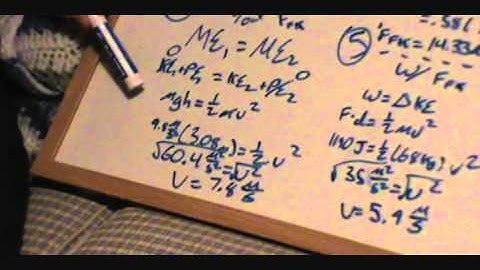 ME₁ = ME₂
0 KE₁+PE₁ = KE₂+PE₂ 0
mgh = ½mv²
9.8 m/s² (3.08m) = ½ v²
√60.4 m²/s² = √v²
v = 7.8 m/s
= .58(
⑤ F_FRK = 14.334
w/ F_FRK
W = ΔKE
F·d = ½mv²
1190J = ½(68kg) v²
√35 m²/s² = √v²
v = 5.9 m/s